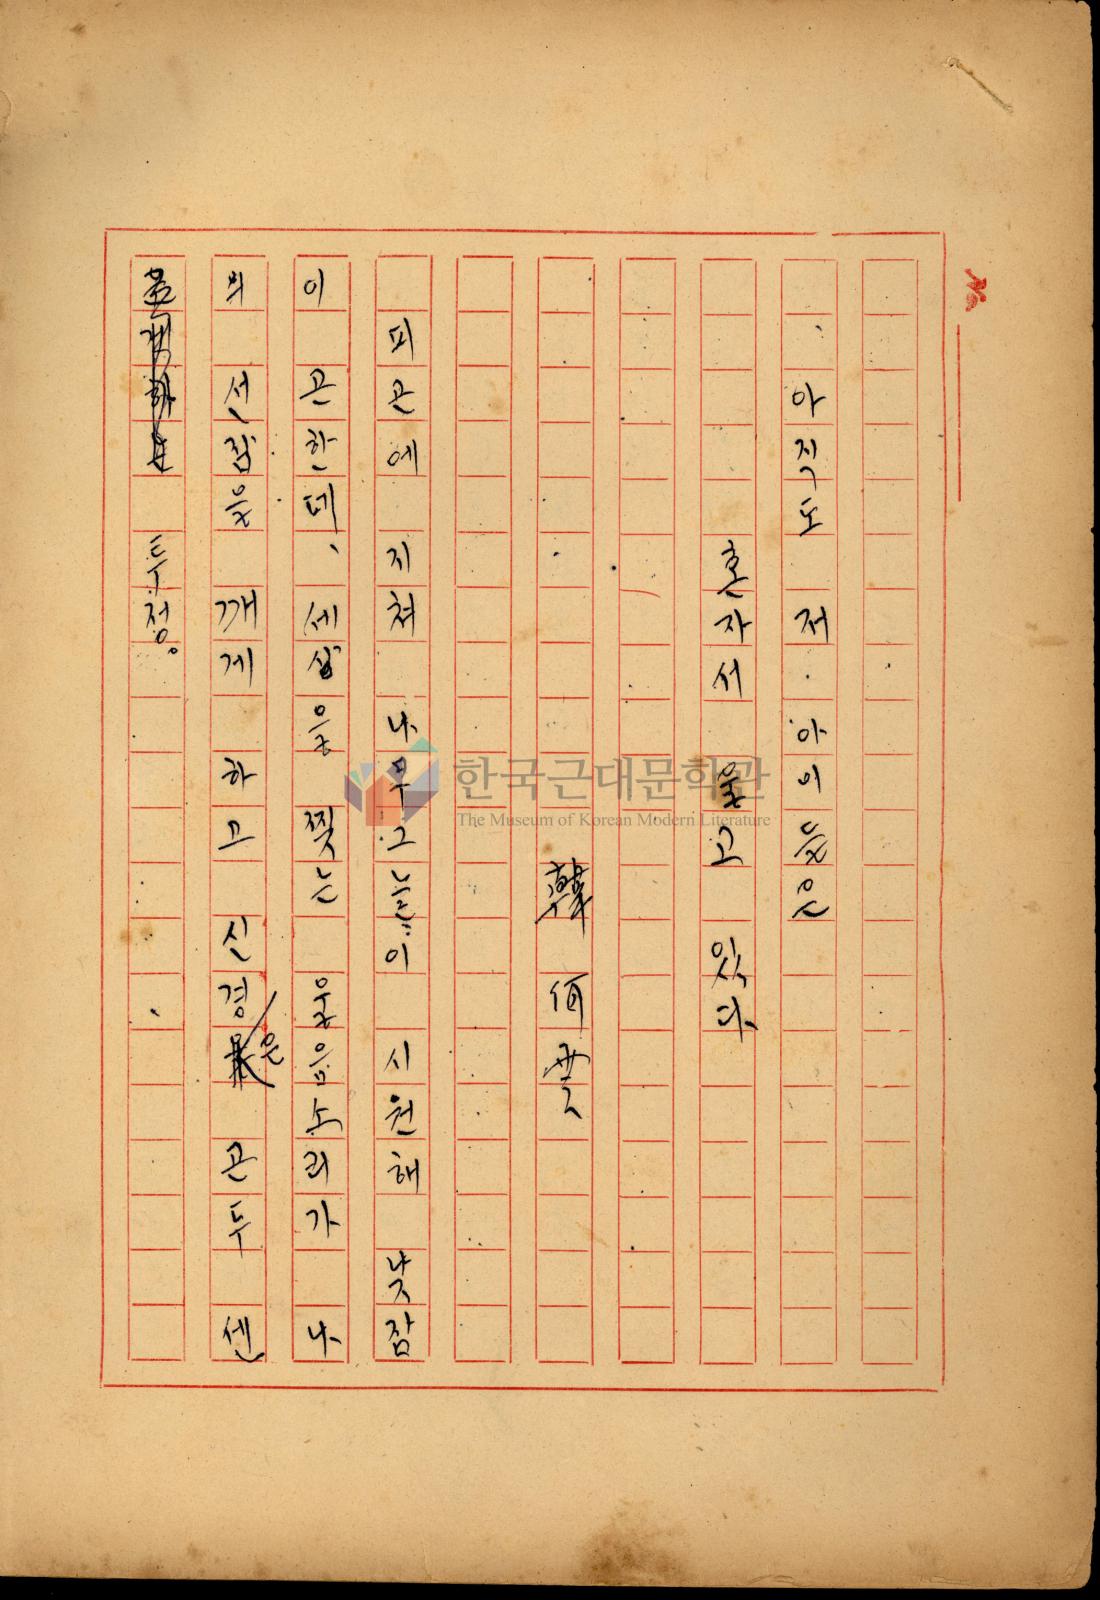 No.
아직도 저 아이들은
혼자서 울고 있다
韓 何雲
피곤에 지쳐 나무그늘이 시원해 낮잠
이 곤한데、세상을 찢는 울음소리가 나
의 선잠을 깨게 하고 신경은 곤두 센
투정。
한국근대문학관
The Museum of Korean Modern Literature